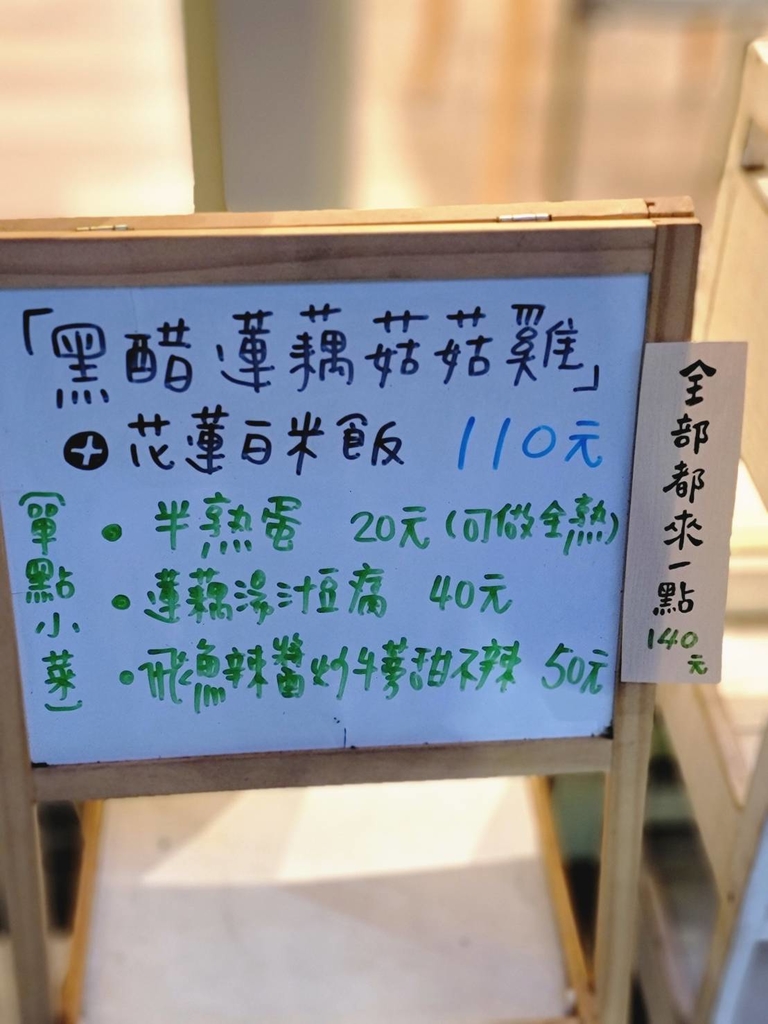 「黑醋蓮藕菇菇雞」
+花蓮白米飯 110元
(單點小菜)
• 半熟蛋 20元(可做全熟)
• 蓮藕湯汁豆腐 40元
• 飛魚辣醬炒牛蒡甜不辣 50元
全部都來一點
140元